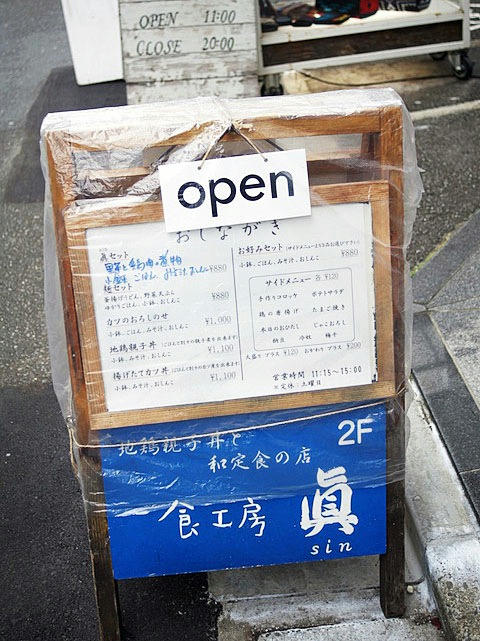 OPEN 11:00
CLOSE 20:00
open
おしながき
眞セット
野菜と鶏肉の煮物
小鉢、ごはん、みそ汁、おしんこ ¥880
麺セット
釜揚げうどん、野菜天ぷら
ゆかりごはん、小鉢、おしんこ ¥880
カツのおろしのせ ¥1,000
小鉢、みそ汁、おしんこ
地鶏親子丼 ¥1,100
小鉢、みそ汁、おしんこ
揚げたてカツ丼 ¥1,100
小鉢、みそ汁、おしんこ
お好みセット (サイドメニューより3品お選び下さい)
小鉢、ごはん、みそ汁、おしんこ ¥880
サイドメニュー 各 ¥120
手作りコロッケ ポテトサラダ
鶏の唐揚げ たまご焼き
本日のおひたし じゃこおろし
納豆 冷奴 梅干
大盛り プラス ¥120 おかわり プラス ¥200
営業時間 11:15~15:00
※定休:土曜日
2F
地鶏親子丼と
和定食の店
食工房 眞
sin